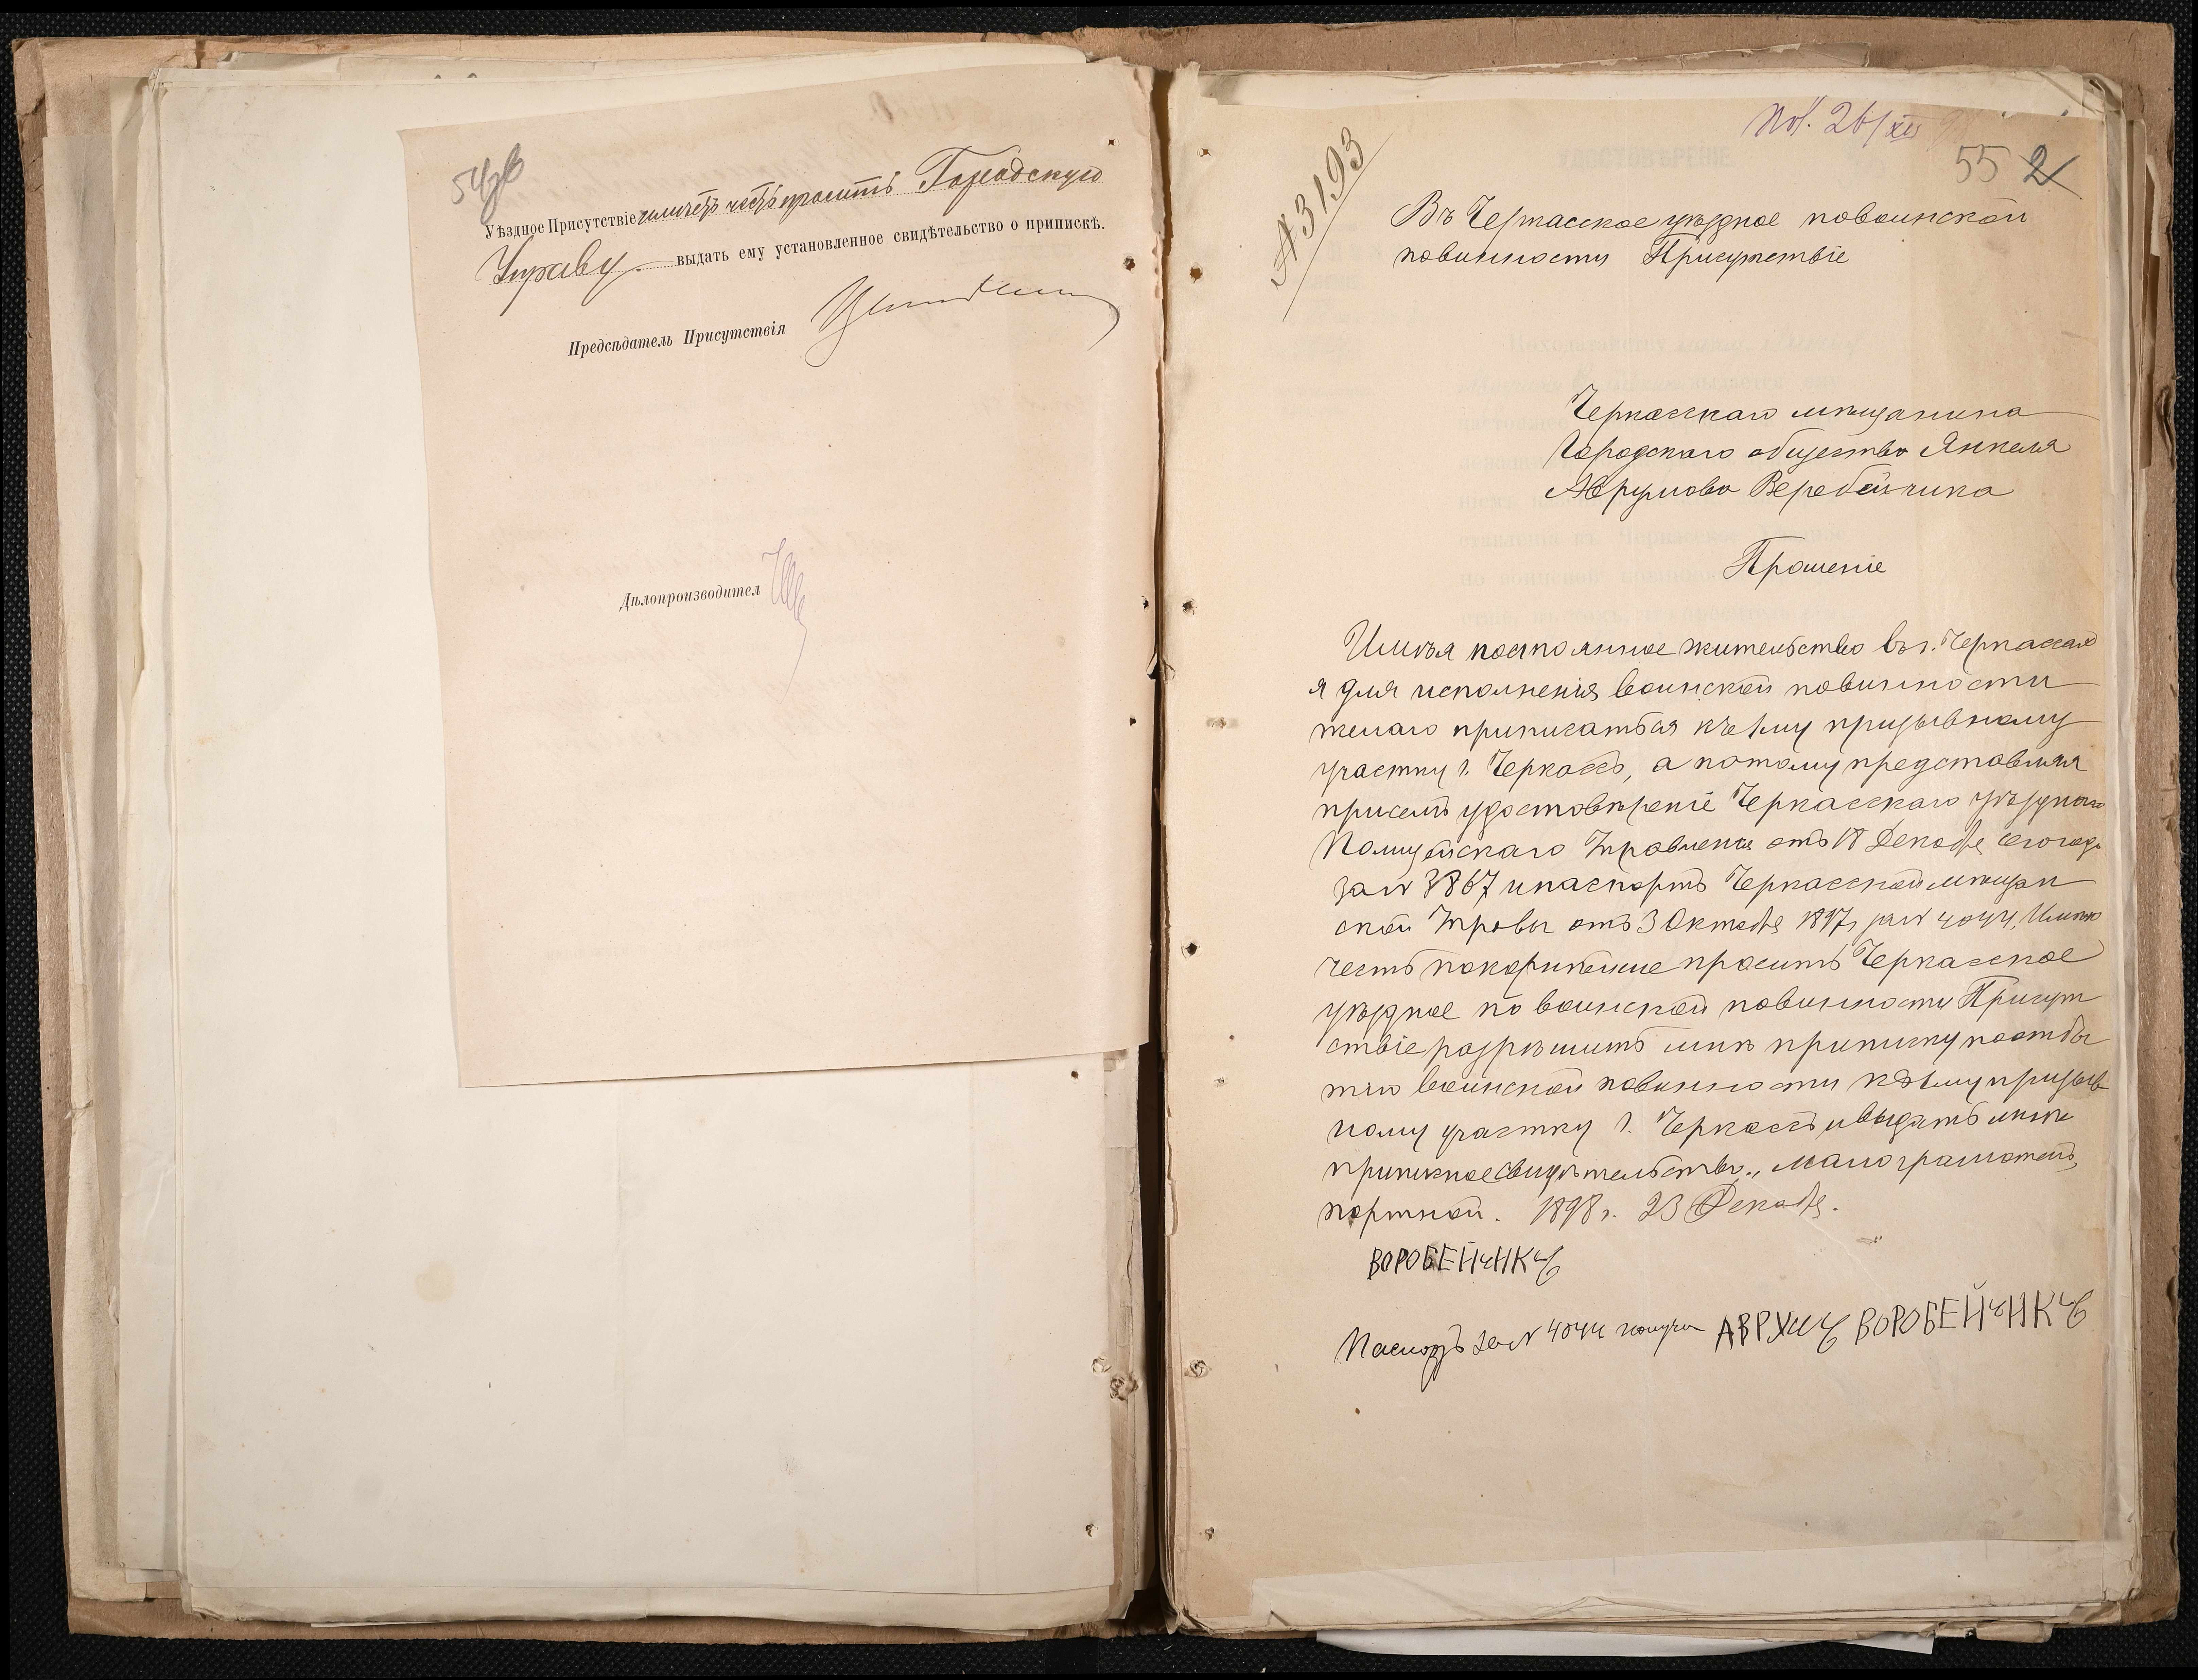 54об
Уѣздное Присутствіе имѣетъ честь просить Городскую
Управу выдать ему установленное свидѣтельство о припискѣ.
Предсѣдатель Присутствія
Дѣлопроизводител
26/XII
55 2
№ 3193
Въ Черкасское уѣздное по воинской
повинности Присутствіе
Черкасскаго мѣщанина
Городскаго общества Янкеля
Аврумова Веребейчика
Прошеніе
Имѣя постоянное жительство въ г. Черкассахъ
я для исполненія воинской повинности
желаю приписаться къ 1му призывному
участку г. Черкассъ, а потому представляя
присемъ удостовѣреніе Черкасскаго уѣзднаго
Полицейскаго Управленія отъ 18 Декабря сего года
за № 3867 и паспортъ Черкасской мѣщан
ской Управы отъ 3 Октября 1897 г за № 4044, Имѣю
честь покорнѣйше просить Черкасское
уѣздное по воинской повинности Присут
ствіе разрѣшить мнѣ приписку по отбы
тію воинской повинности къ 1му призыв
ному участку г. Черкассъ и выдать мнѣ
приписное свидѣтельство., малограмотенъ,
портной. 1898 г. 23 Декабря.
ВОРОБЕЙЧИКЪ
Паспортъ за № 4044 получ ВОРОБЕЙЧИКЪ